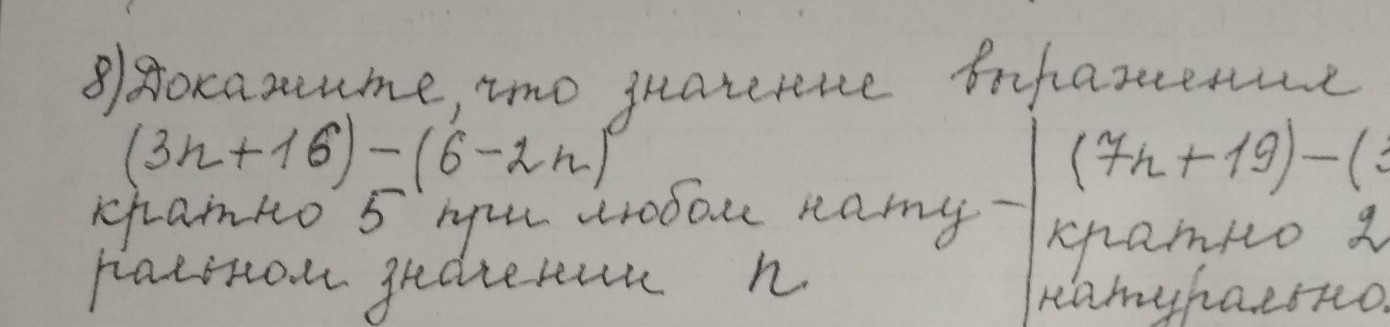 8) Докажите, что значение выражения
(3n+16)-(6-2n)
кратно 5 при любом нату-
ральном значении n.
(7n+19)-(3
кратно 2
натурально